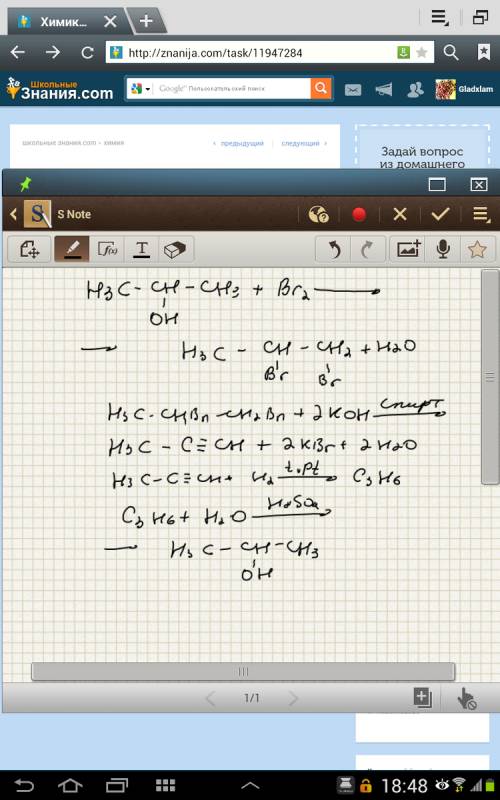 Химик...
http://znanija.com/task/11947284
Школьные
Знания.com
Google™ Пользовательский поиск
Gladxlam
школьные знания.com › химия
‹ предыдущий следующий ›
Задай вопрос
из домашнего
S Note
f(x) T
H3C-CH-CH3 + Br2 →
OH
→ H3C - CH - CH2 + H2O
Br Br
H3C-CHBr-CH2Br + 2KOH спирт →
H3C - C≡CH + 2KBr + 2H2O
H3C-C≡CH + H2 t.pt → C3H6
C3H6 + H2O H2SO4 →
→ H3C-CH-CH3
OH
1/1
18:48